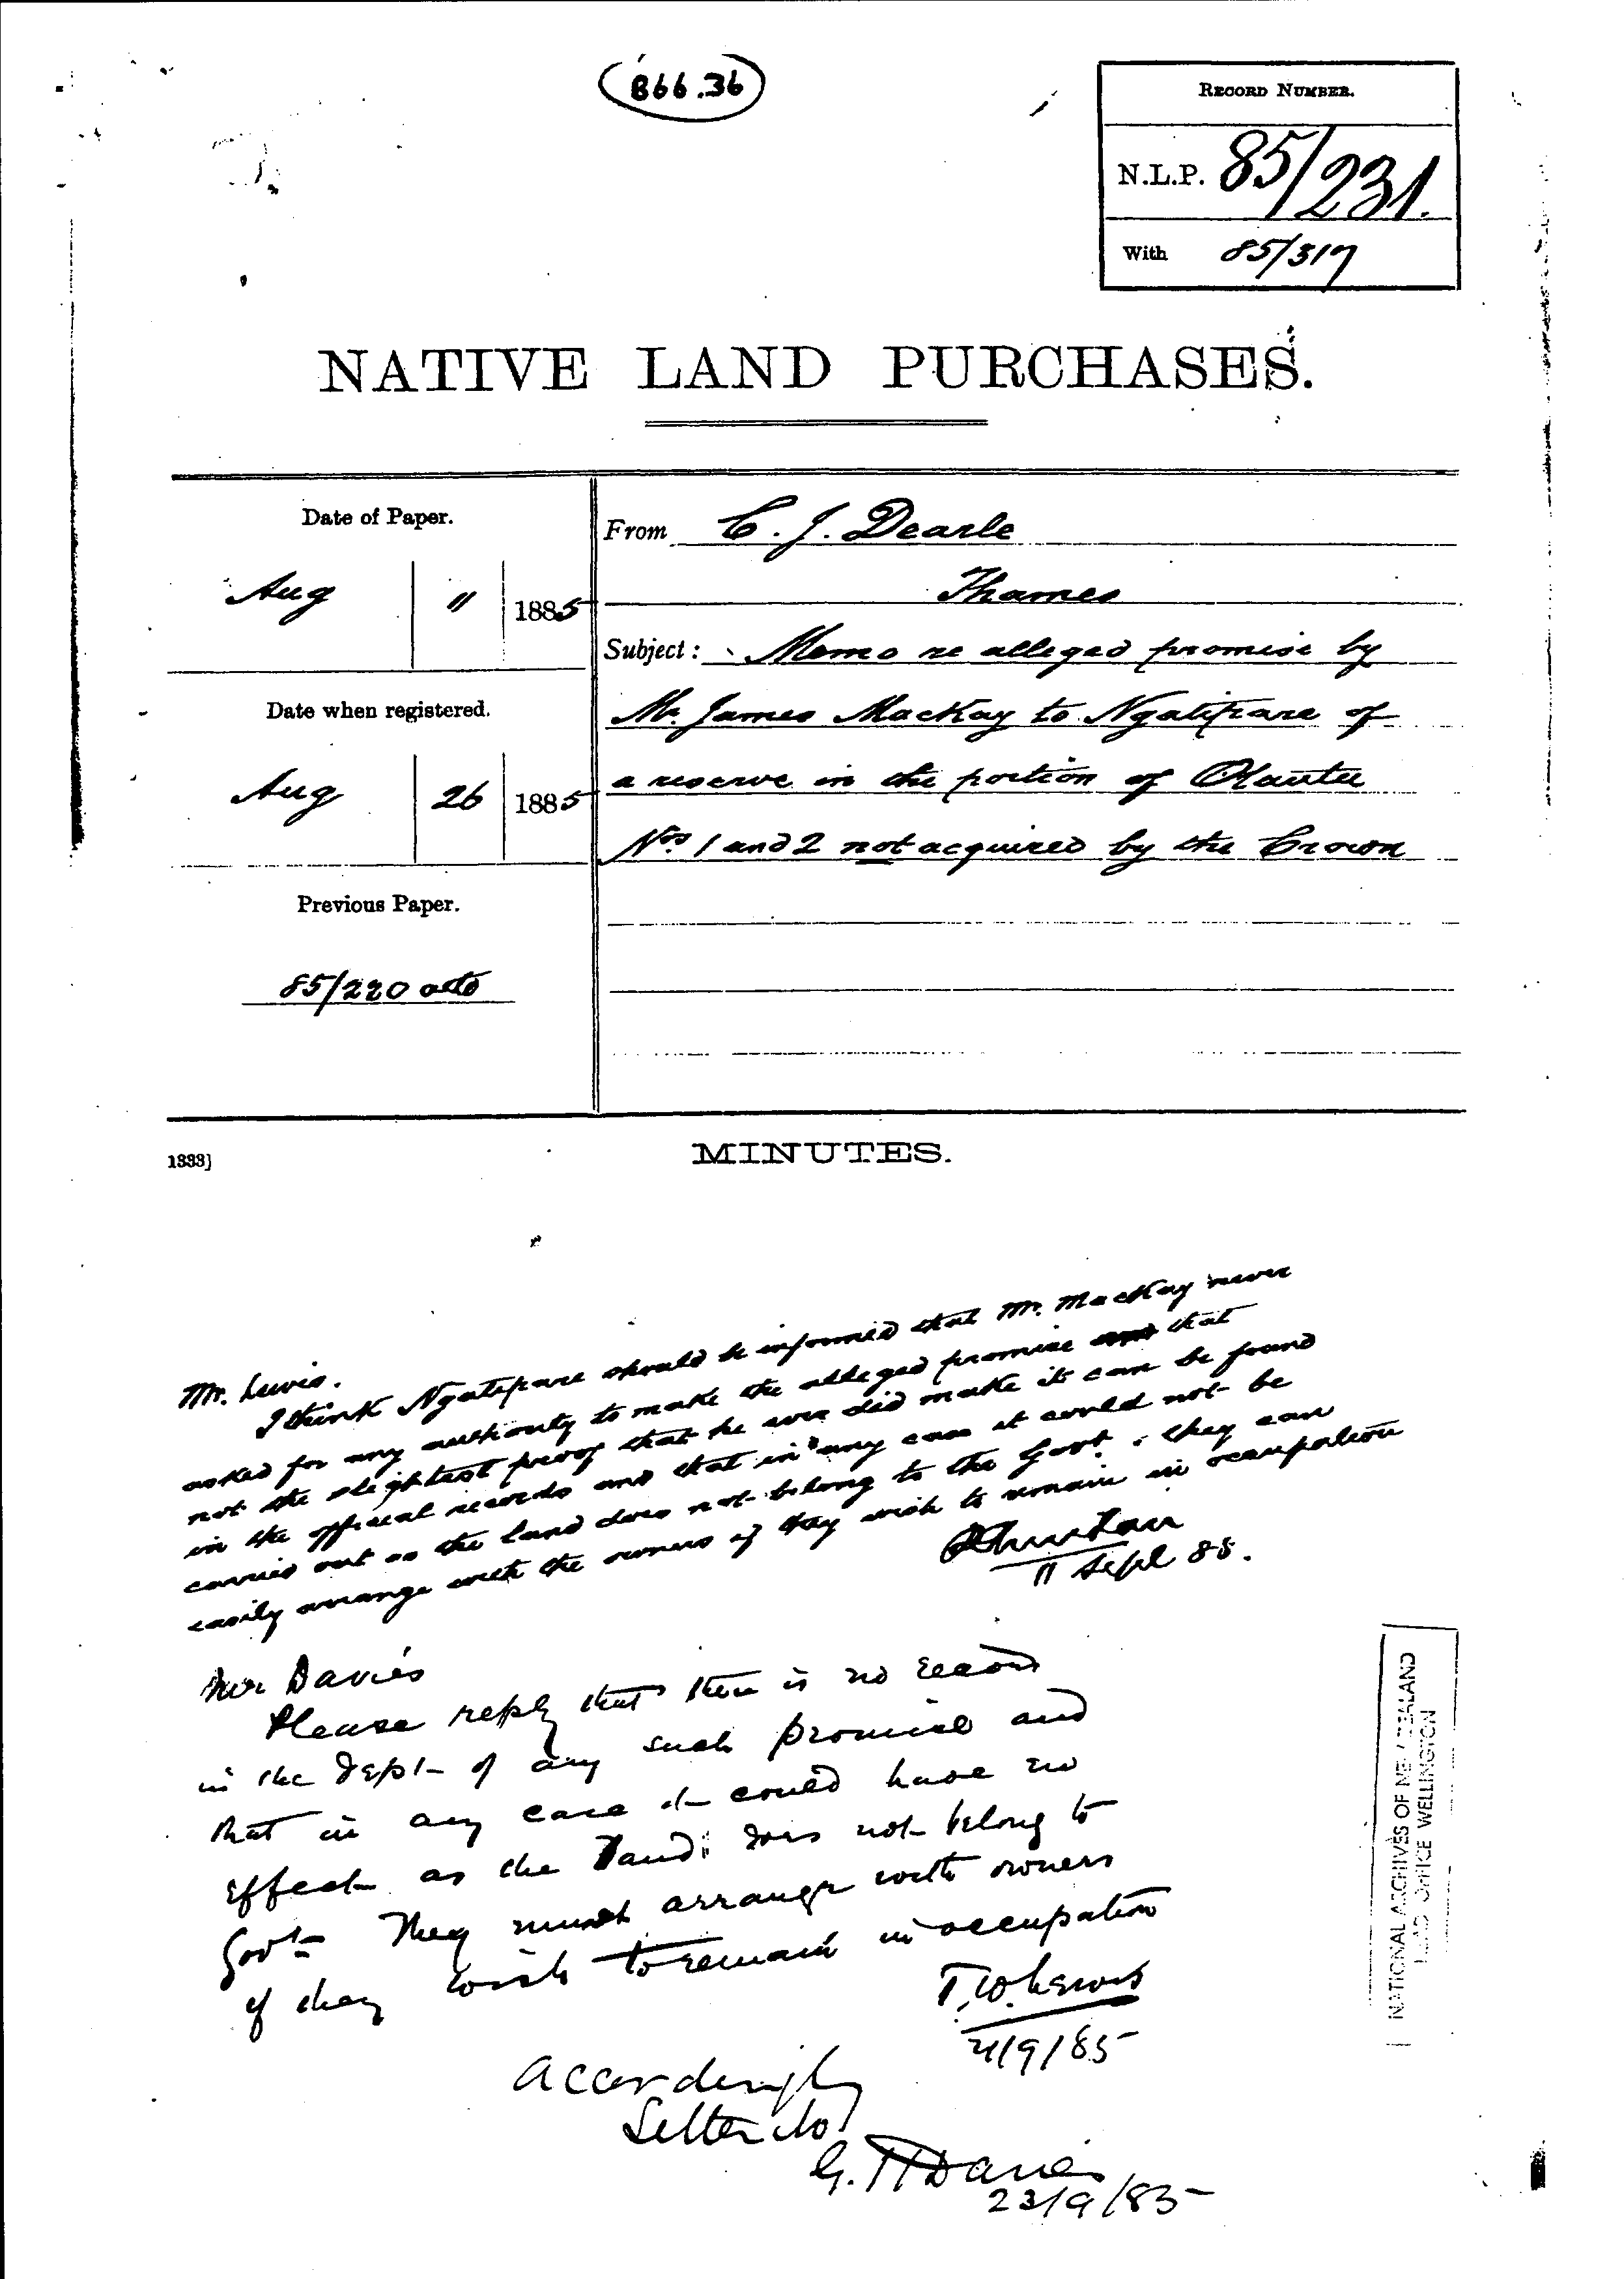 866.36
RECORD NUMBER.
N.L.P. 85/231.
With 85/317
NATIVE LAND PURCHASES.
Date of Paper.
Aug " 1885
Date when registered.
Aug 26 1885
Previous Paper.
85/220
From C. J. Dearle
Thames
Subject: Memo re alleged promise by
Mr. James MacKay to Ngatipare of
a reserve in the portion of
Nos. 1 and 2 not acquired by the Crown
1333]
MINUTES.
Mr. Lewis.
I think Ngatipare should be informed that Mr. MacKay never
asked for any authority to make the alleged promise that
not the slightest proof that he ever did make it can be found
in the official records and that in any case it could not be
carried out as the land does not belong to the Govt. They can
easily arrange with the owners if they wish to remain in occupation
11 Sept 85.
Mr Davies
Please reply that there is no record
in the Dept of any such promise and
that in any case it could have no
effect as the land does not belong to
Govt They must arrange with owners
if they wish to remain in occupation
T.W. Lewis
/9/85
Accordingly
Letter to
G. H Davies
23/9/85
NATIONAL ARCHIVES OF NEW ZEALAND
HEAD OFFICE WELLINGTON